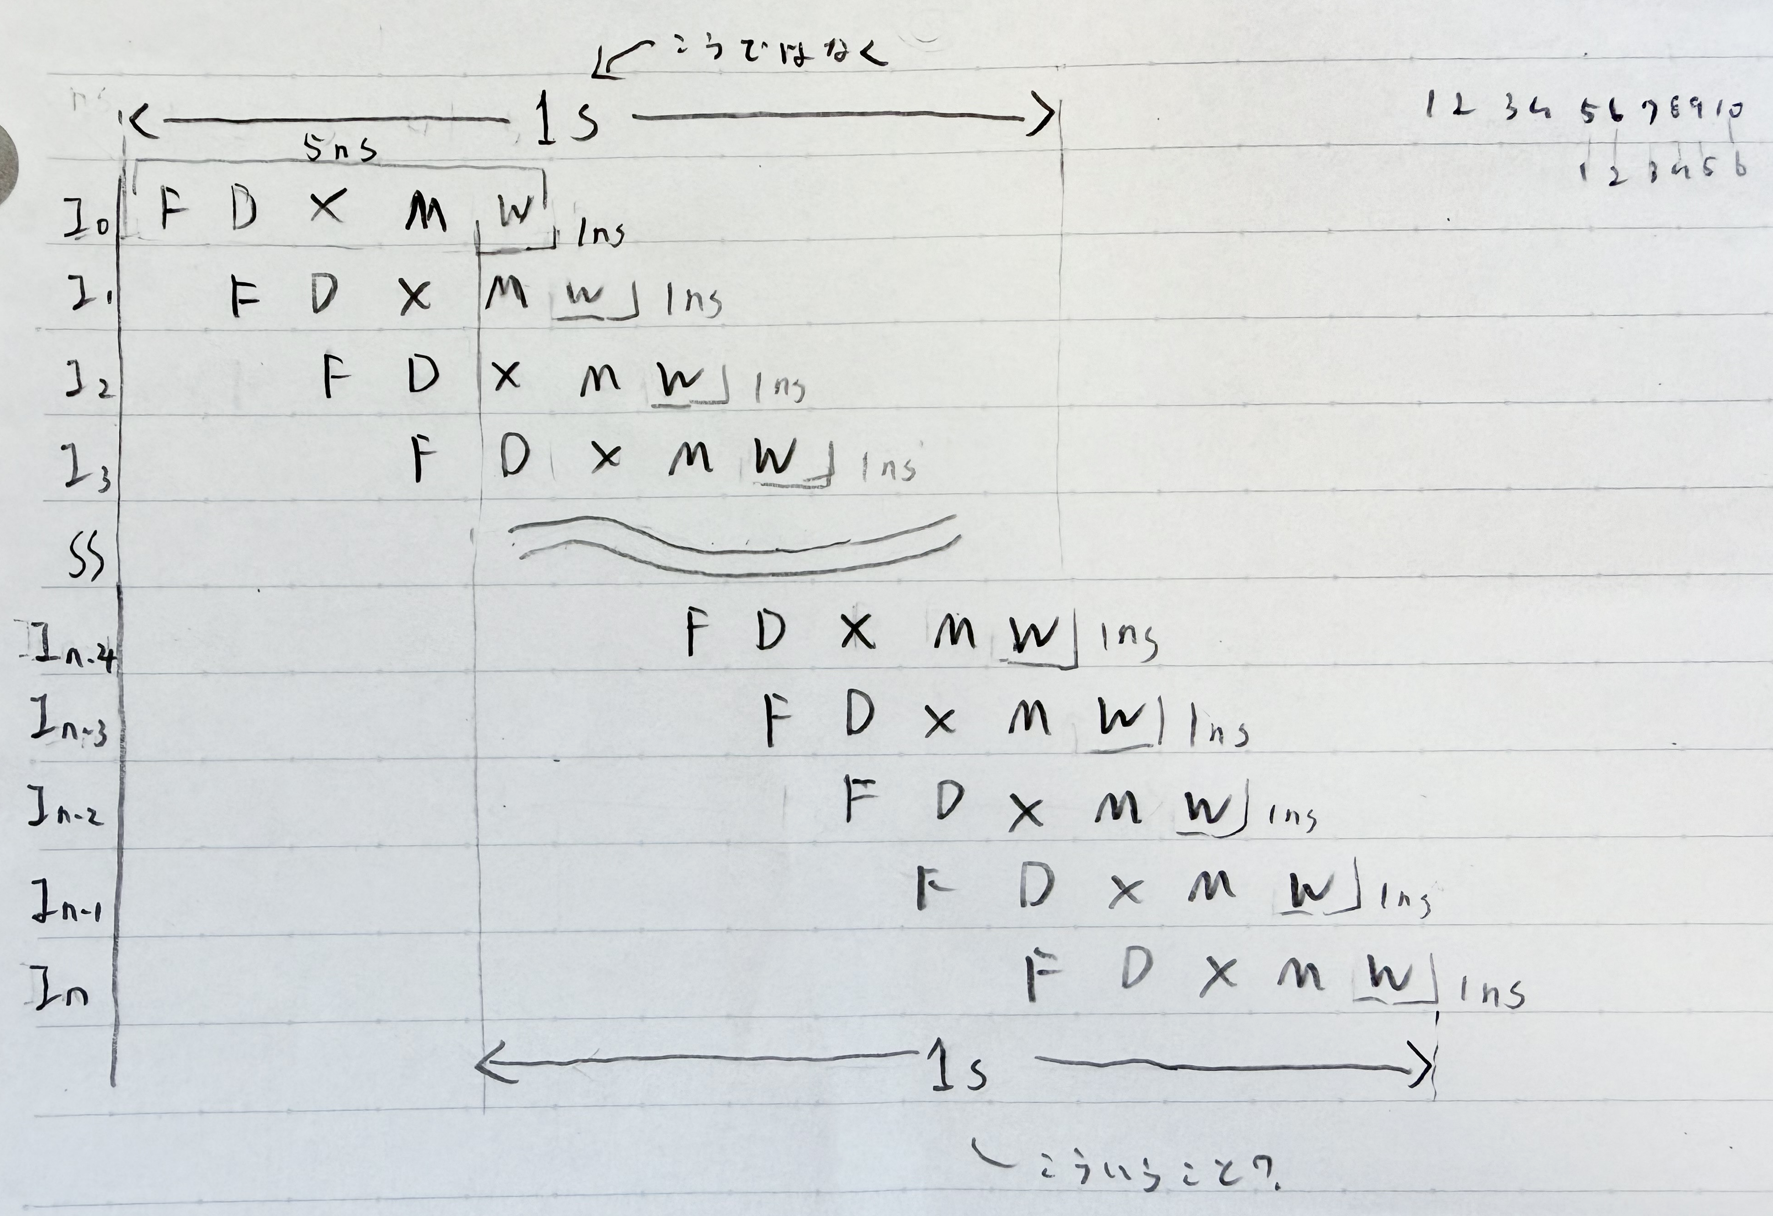 こうではなく
1s
1 2 3 4 5 6 7 8 9 10
1 2 3 4 5 6
5ns
I0 F D X M W 1ns
I1 F D X M W 1ns
I2 F D X M W 1ns
I3 F D X M W 1ns
SS
In-4 F D X M W 1ns
In-3 F D X M W 1ns
In-2 F D X M W 1ns
In-1 F D X M W 1ns
In F D X M W 1ns
1s
こういうこと?